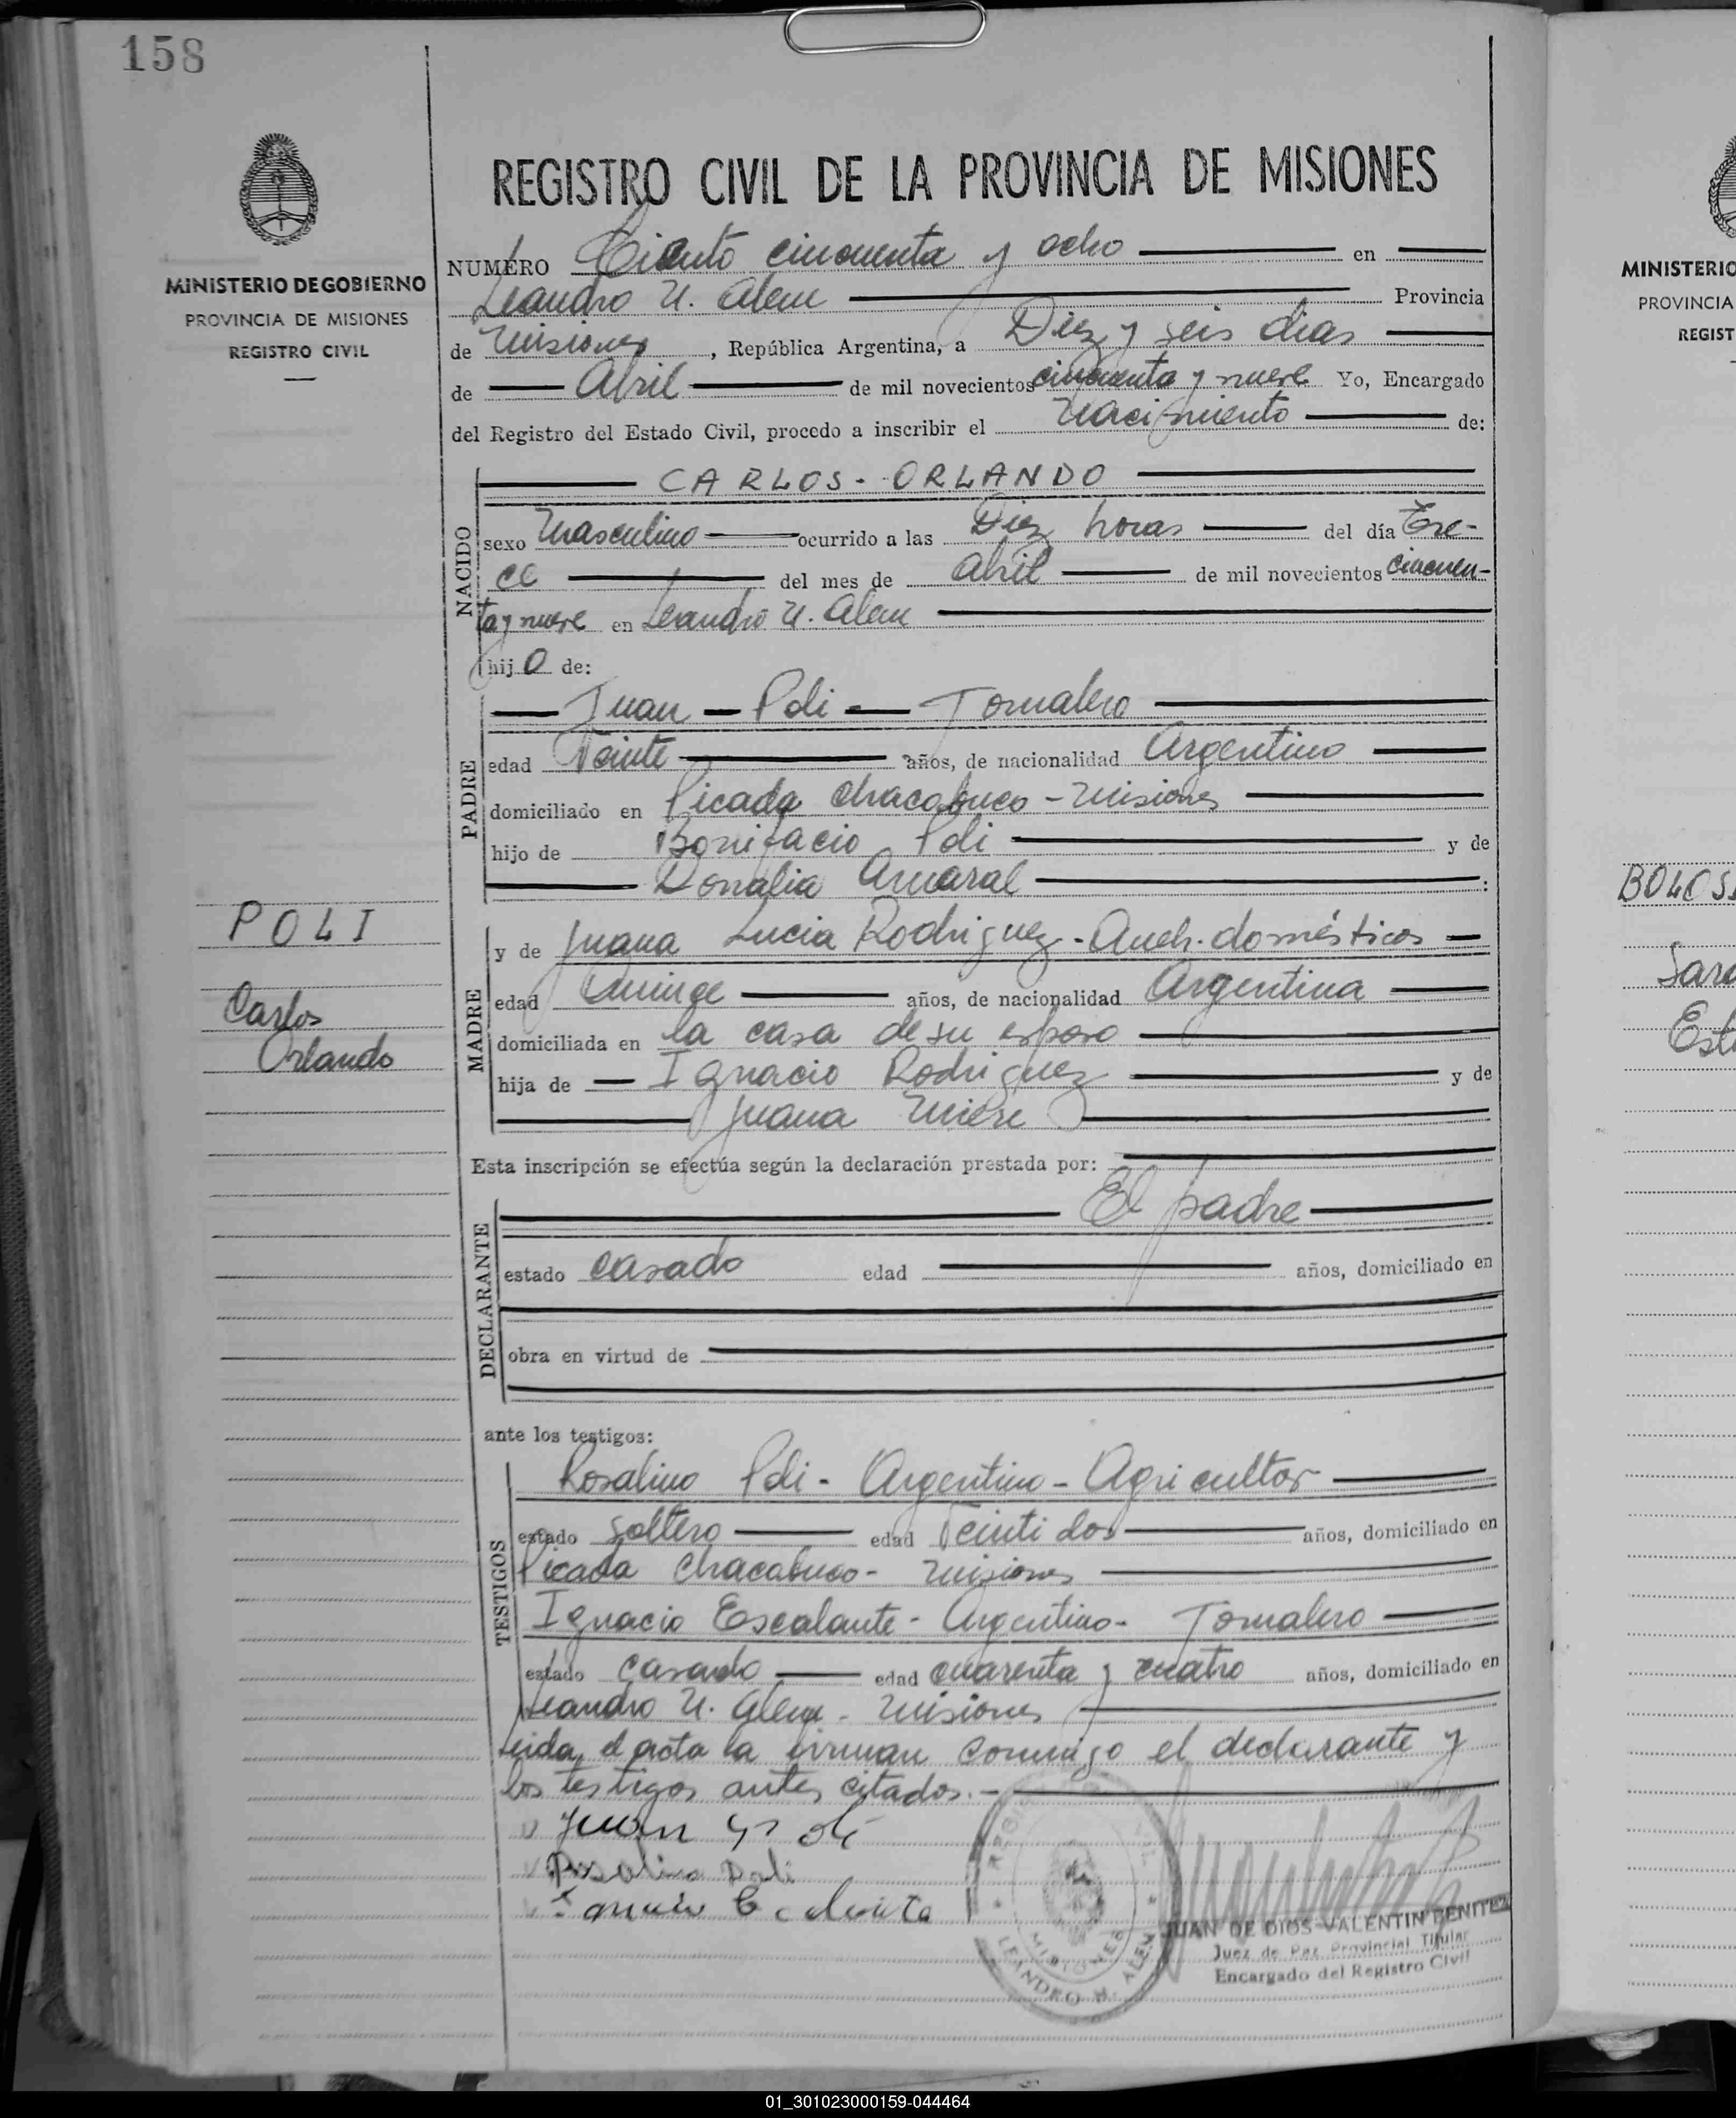 158
MINISTERIO DE GOBIERNO
PROVINCIA DE MISIONES
REGISTRO CIVIL
REGISTRO CIVIL DE LA PROVINCIA DE MISIONES
NUMERO Ciento cincuenta y ocho en
Leandro N. Alem Provincia
de Misiones, República Argentina, a Diez y seis dias
de Abril de mil novecientos cincuenta y nueve Yo, Encargado
del Registro del Estado Civil, procedo a inscribir el Nacimiento de:
NACIDO
CARLOS - ORLANDO
sexo Masculino ocurrido a las Diez horas del día Tre-
ce del mes de Abril de mil novecientos cincuen-
ta y nueve en Leandro N. Alem
hijo de:
PADRE
Juan - Poli - Jornalero
edad Veinte años, de nacionalidad Argentino
domiciliado en Picada Chacabuco - Misiones
hijo de Bonifacio Poli y de
Amaral :
POLI
Carlos
Orlando
MADRE
y de Juana Lucia Rodriguez - Queh. domésticos
edad Quince años, de nacionalidad Argentina
domiciliada en la casa de su esposo
hija de Ignacio Rodriguez y de
Juana
Esta inscripción se efectúa según la declaración prestada por:
DECLARANTE
El padre
estado casado edad años, domiciliado en
obra en virtud de
ante los testigos:
TESTIGOS
Rosalino Poli - Argentino - Agricultor
estado soltero edad Veinti dos años, domiciliado en
Picada Chacabuco - Misiones
Ignacio Escalante - Argentino - Jornalero
estado casado edad cuarenta y cuatro años, domiciliado en
Leandro N. Alem - Misiones
Leida el acta la firman conmigo el declarante y
los testigos antes citados. -
Juan Poli
Rosalino Poli
MISIONES
LEANDRO N. ALEM
JUAN DE DIOS VALENTIN BENITEZ
Juez de Paz Provincial Titular
Encargado del Registro Civil
MINISTERIO
PROVINCIA
REGIST
01_301023000159-044464